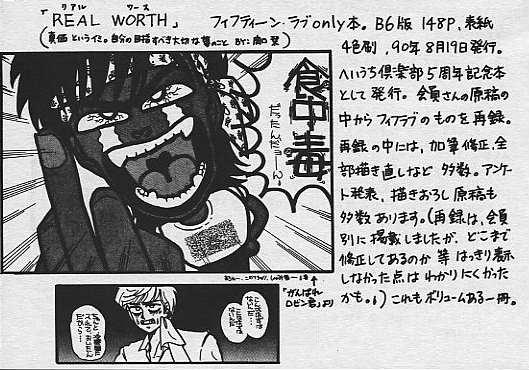 リアル ワース
「REAL WORTH」 フィフティーン・ラブonly本。B6版 148P、表紙
(真価 というイミ。自分の目指すべき大切な夢のこと BY:
4色刷、90年8月19日発行。
へいうち倶楽部5周年記念本
として発行。会員さんの原稿の
中からフィフラブのものを再録。
再録の中には、加筆修正、全
部描き直しなど多数。アンケ
ート発表、描きおろし原稿も
多数あります。(再録は、会員
別に掲載しましたが、どこまで
修正してあるのか等はっきり表示
しなかった点はわかりにくかった
かも。) これもボリュームある一冊。
食中毒
だったんだーーん。
「がんばれ
ロビン君」より